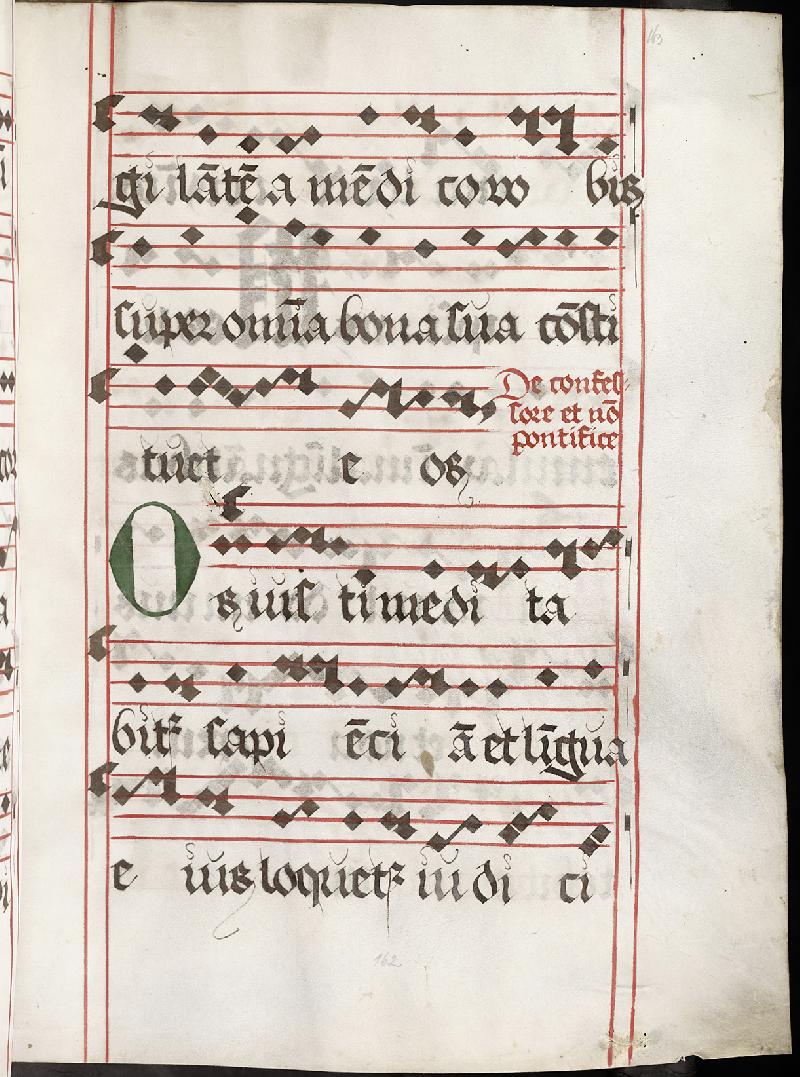 163
gi lātē a mēdi co vo bis
super om̄ia bona sua cōsti
De confes-
sore et nō
pontifice
tuet e os
O s iusti medi ta
bit᷑ sapi ēci ā et līgua
e ius loquet᷑ iu di ci
162